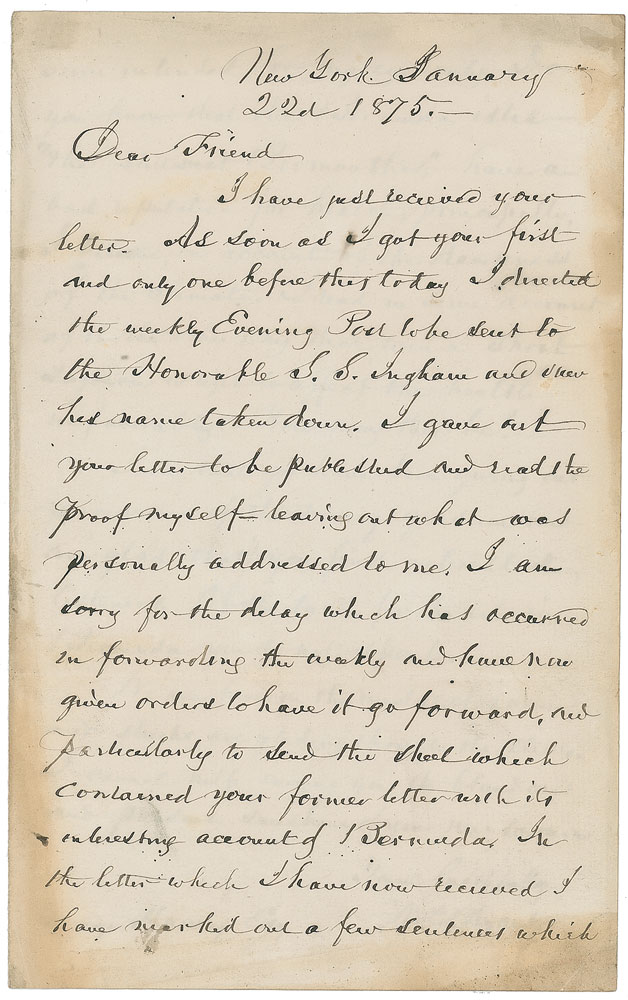 New York January
22d 1875.—
Dear Friend
I have just recieved your
letter. As soon as I got your first
and only one before this today I directed
the weekly Evening Post to be sent to
the Honorable S. S. Ingham and saw
his name taken down. I gave out
your letter to be published and read the
proof myself leaving out what was
personally addressed to me. I am
sorry for the delay which has occurred
in forwarding the weekly and have now
given orders to have it go forward, and
particularly to send the sheet which
contained your former letter with its
interesting account of Bermuda. In
the letter which I have now recieved I
have marked out a few sentences which